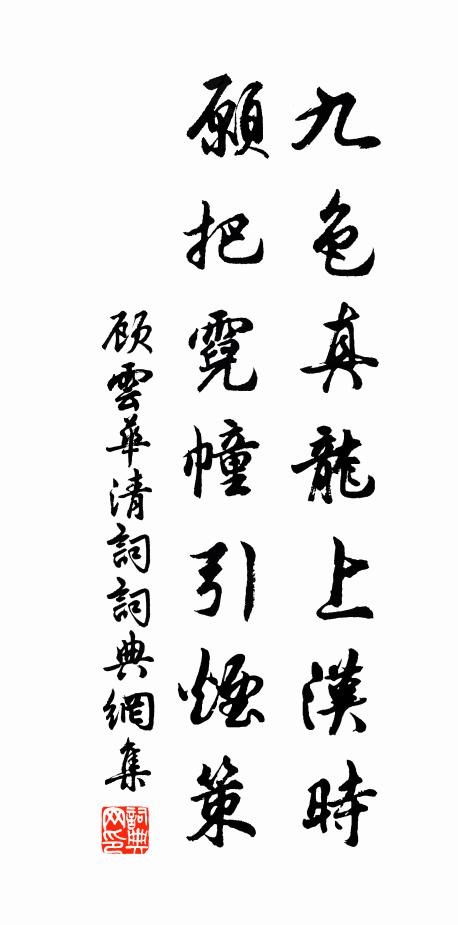 九色真龍上漢時
願把霓幢引煙策
顾雲華清詞詞典網集
詞典
网印